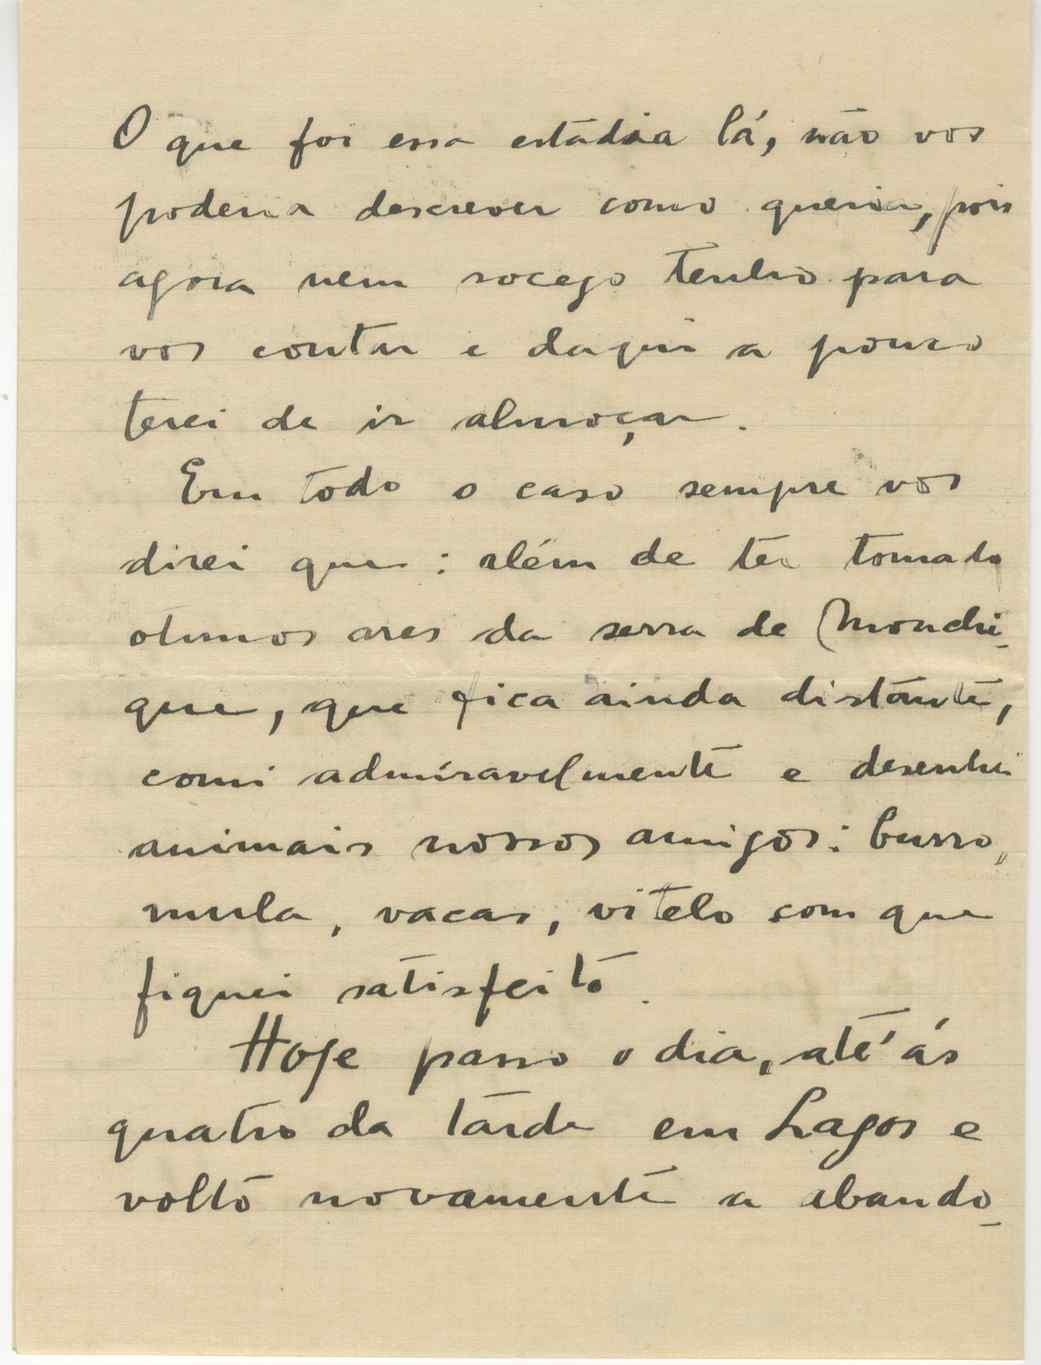 O que foi essa estádia lá, não vos
poderia descrever como queria, pois
agora nem socego tenho para
vos contar e daqui a pouco
terei de ir almoçar.
Em todo o caso sempre vos
direi que: além de ter tomado
otimos ares da serra de Monchi-
que, que fica ainda distante,
comi admiravelmente e desenhei
animais nossos amigos: burro,
mula, vacas, vitelo com que
fiquei satisfeito.
Hoje passo o dia, até ás
quatro da tarde em Lagos e
volto novamente a abando-